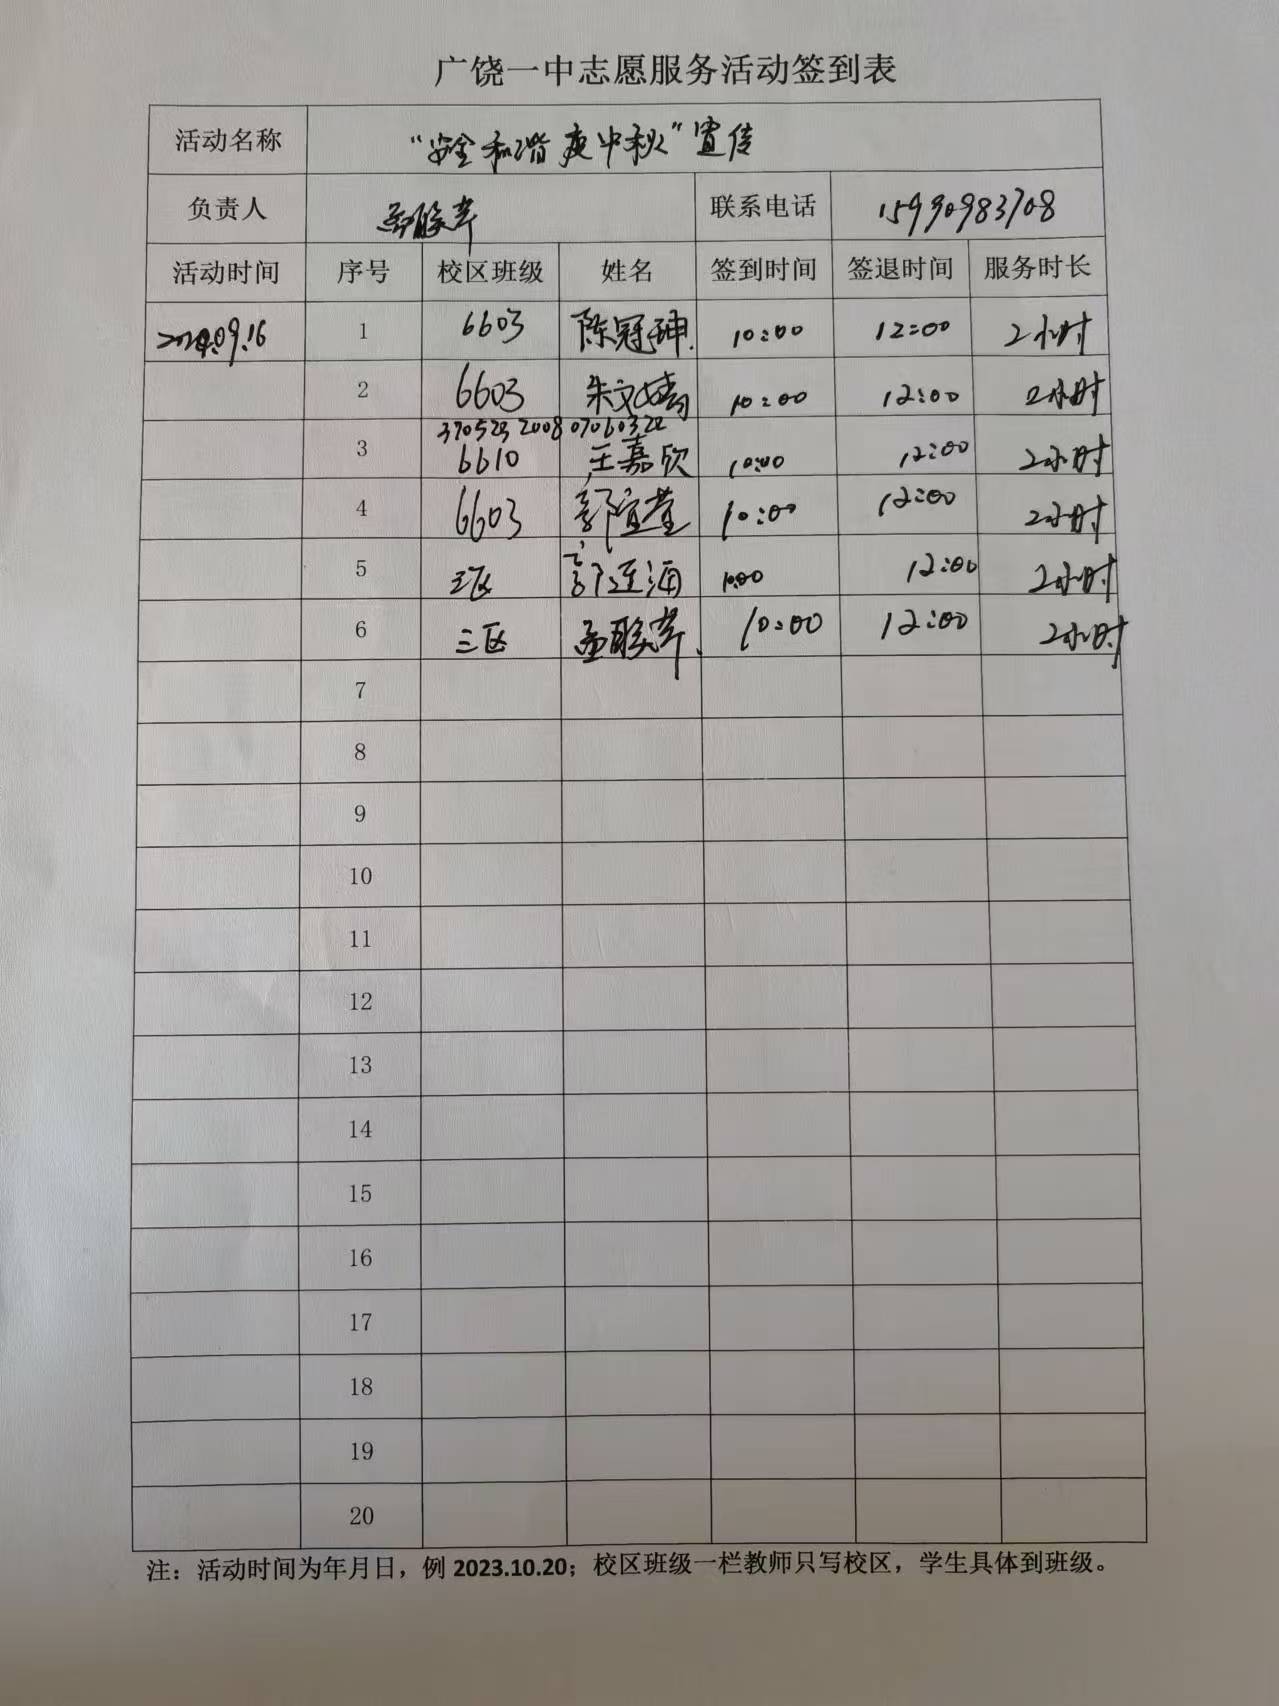 广饶一中志愿服务活动签到表
活动名称 “安全和谐庆中秋”宣传
负责人 孟联芹 联系电话 15990983708
活动时间 序号 校区班级 姓名 签到时间 签退时间 服务时长
2024.09.16 1 6603 陈冠珅 10:00 12:00 2小时
2 6603 朱文婧 10:00 12:00 2小时
370523200807060322
3 6610 王嘉欣 10:00 12:00 2小时
4 6603 郭宜萱 10:00 12:00 2小时
5 三区 郭连海 10:00 12:00 2小时
6 三区 孟联芹 10:00 12:00 2小时
7
8
9
10
11
12
13
14
15
16
17
18
19
20
注：活动时间为年月日，例 2023.10.20；校区班级一栏教师只写校区，学生具体到班级。